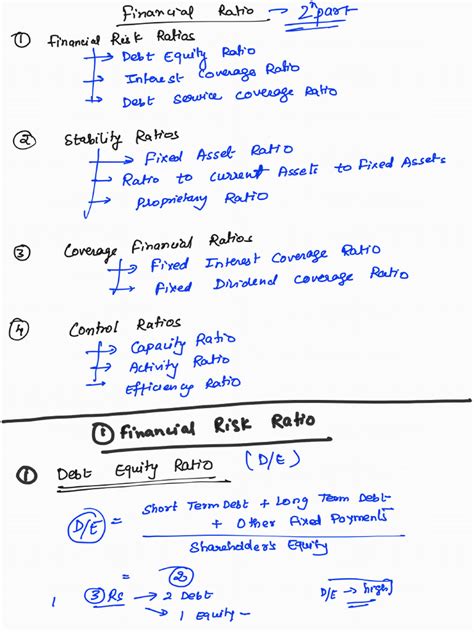 Financial Ratio → 2nd part
① Financial Risk Ratios
→ Debt Equity Ratio
→ Interest Coverage Ratio
→ Debt Service Coverage Ratio
② Stability Ratios
→ Fixed Asset Ratio
→ Ratio to current Assets to Fixed Assets
→ Proprietary Ratio
③ Coverage Financial Ratios
→ Fixed Interest Coverage Ratio
→ Fixed Dividend Coverage Ratio
④ Control Ratios
→ Capacity Ratio
→ Activity Ratio
→ Efficiency Ratio
① Financial Risk Ratio
① Debt Equity Ratio (D/E)
D/E = Short Term Debt + Long Term Debt
+ Other Fixed Payments
Shareholder's Equity
= 2
3 Rs → 2 Debt
→ 1 Equity
D/E → high